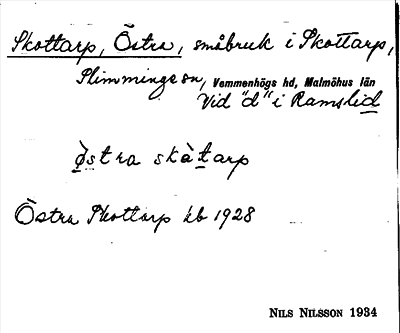 Skottarp, Östra, småbruk i Skottarp,
Slimminge sn, Vemmenhögs hd, Malmöhus län
Vid "d" i Ramslid
östra skåtarp
Östra Skottarp kb 1928
NILS NILSSON 1934